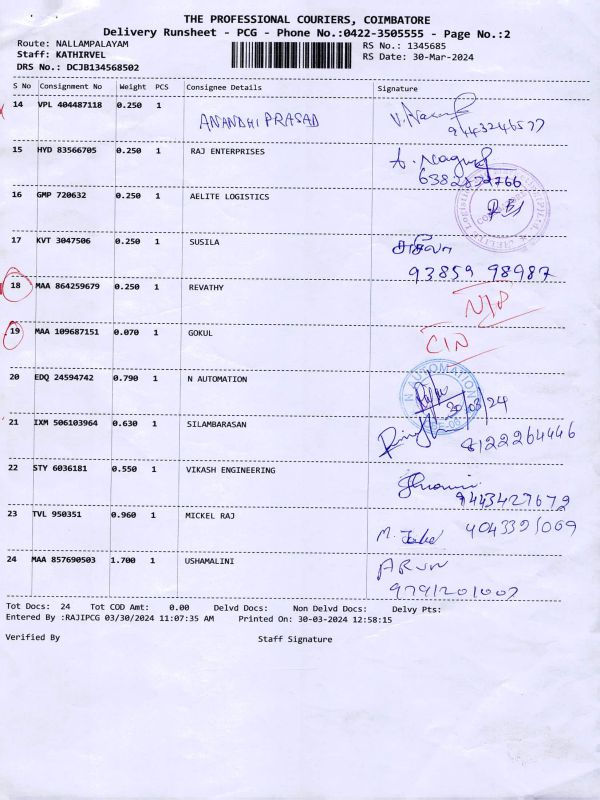 THE PROFESSIONAL COURIERS, COIMBATORE
Delivery Runsheet - PCG - Phone No.:0422-3505555 - Page No.:2
Route: NALLAMPALAYAM RS No.: 1345685
Staff: KATHIRVEL RS Date: 30-Mar-2024
DRS No.: DCJB134568502
S No Consignment No Weight PCS Consignee Details Signature
14 VPL 404487118 0.250 1 ANANDHI PRASAD
15 HYD 83566705 0.250 1 RAJ ENTERPRISES
16 GMP 720632 0.250 1 AELITE LOGISTICS
17 KVT 3047506 0.250 1 SUSILA சுசிலா
93859 98987
18 MAA 864259679 0.250 1 REVATHY N/P
19 MAA 109687151 0.070 1 GOKUL CIN
20 EDQ 24594742 0.790 1 N AUTOMATION N AUTOMATION
30/03/24
21 IXM 506103964 0.630 1 SILAMBARASAN
8122264446
22 STY 6036181 0.550 1 VIKASH ENGINEERING
9443427672
23 TVL 950351 0.960 1 MICKEL RAJ
24 MAA 857690503 1.700 1 USHAMALINI ARUN
9791201007
Tot Docs: 24 Tot COD Amt: 0.00 Delvd Docs: Non Delvd Docs: Delvy Pts:
Entered By :RAJIPCG 03/30/2024 11:07:35 AM Printed On: 30-03-2024 12:58:15
Verified By Staff Signature